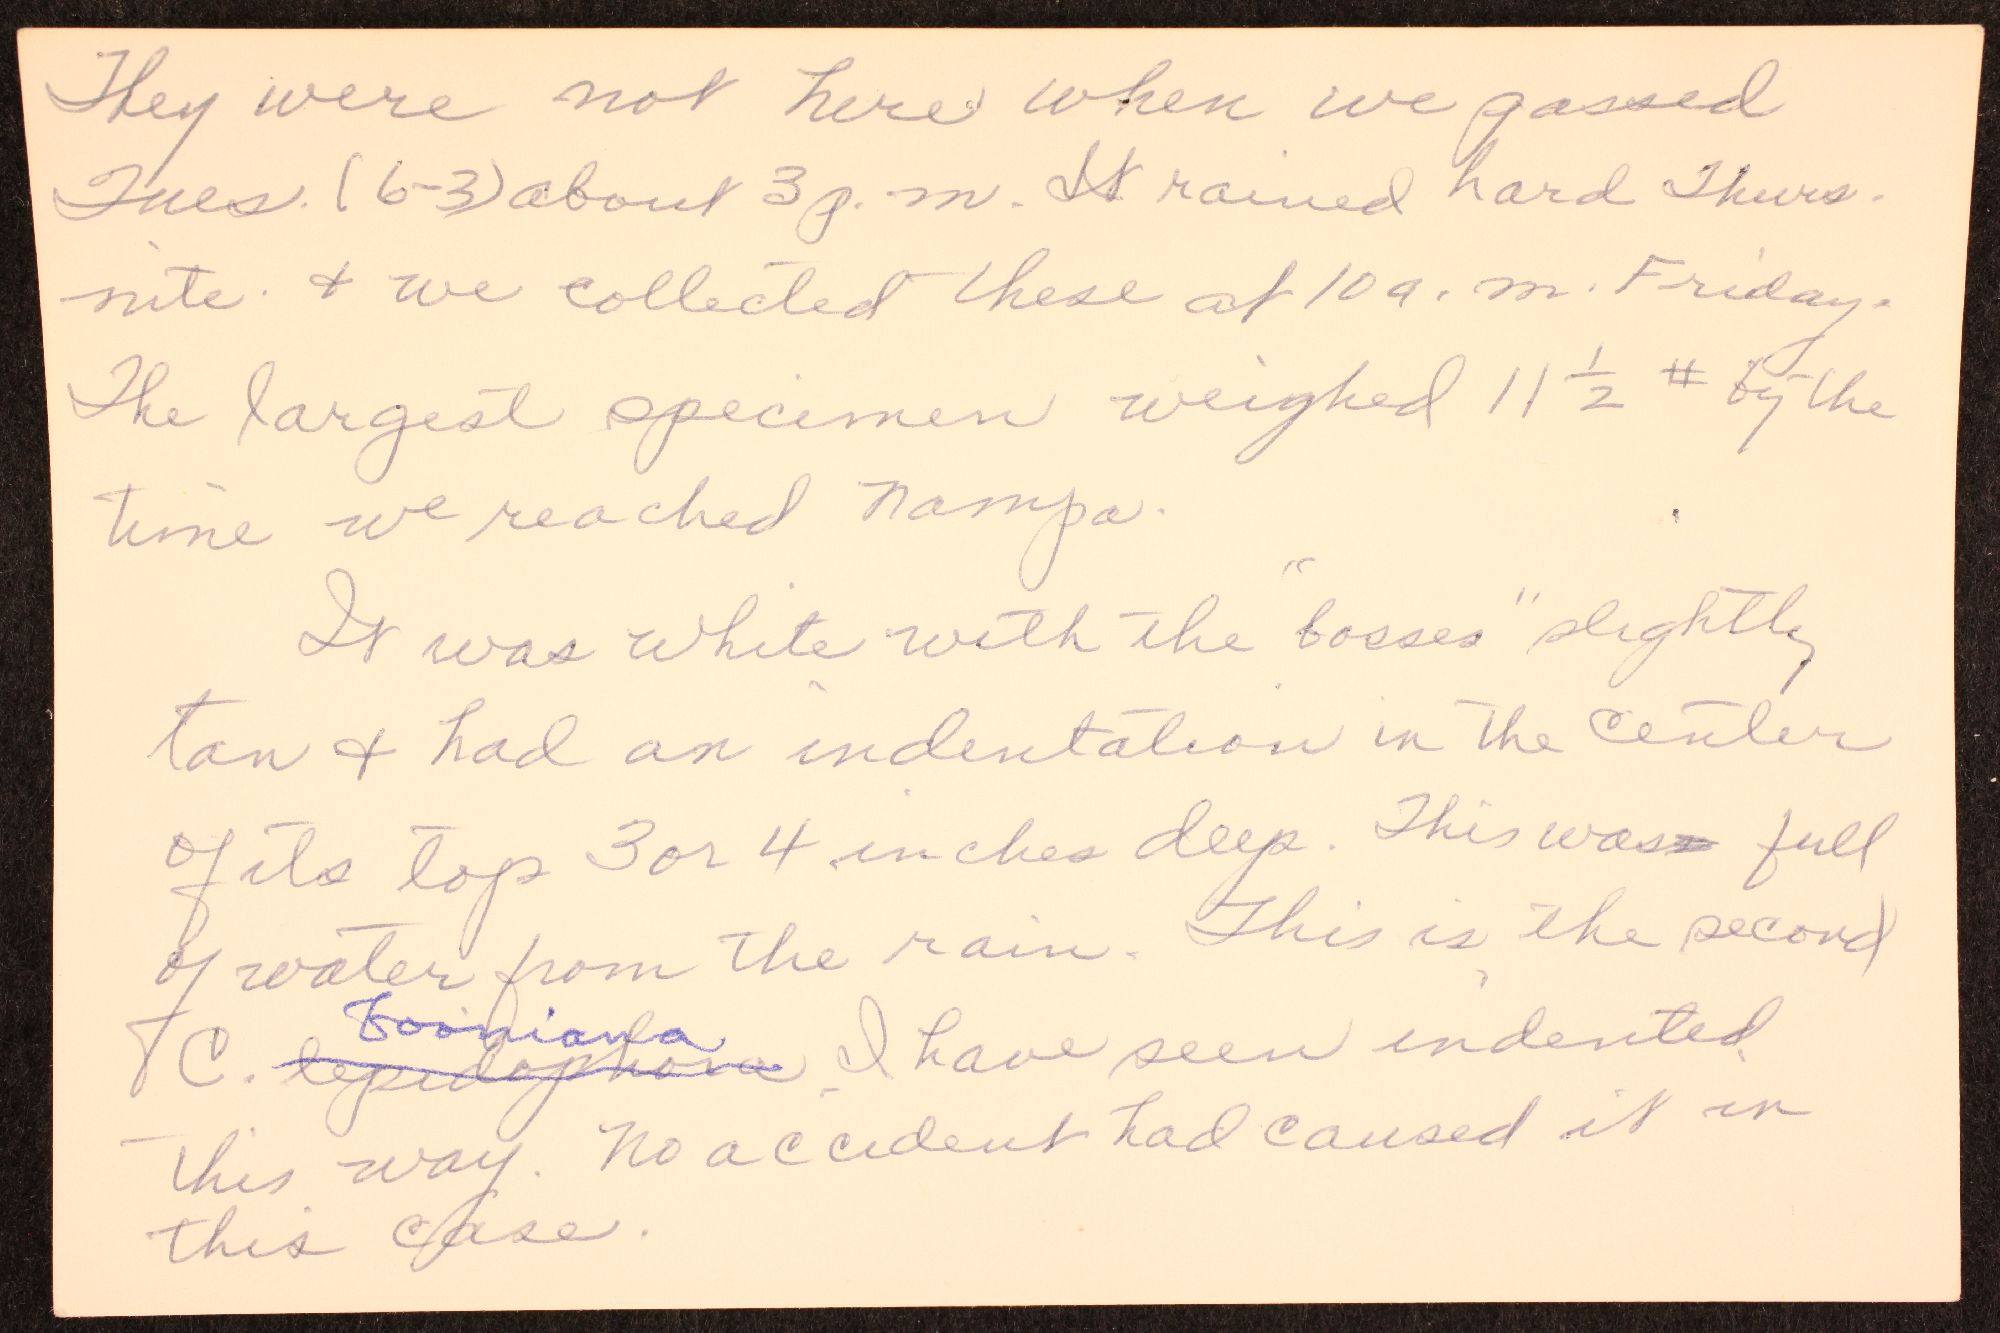 They were not here when we passed
Tues. (6-3) about 3 p.m. It rained hard Thurs.
nite. & we collected these at 10 a.m. Friday.
The largest specimen weighed 11 1/2 # by the
time we reached Nampa.
It was white with the "bosses" slightly
tan & had an indentation in the center
of its top 3 or 4 inches deep. This was full
of water from the rain. This is the second
booniana
C. lepidophora I have seen indented
this way. No accident had caused it in
this case.